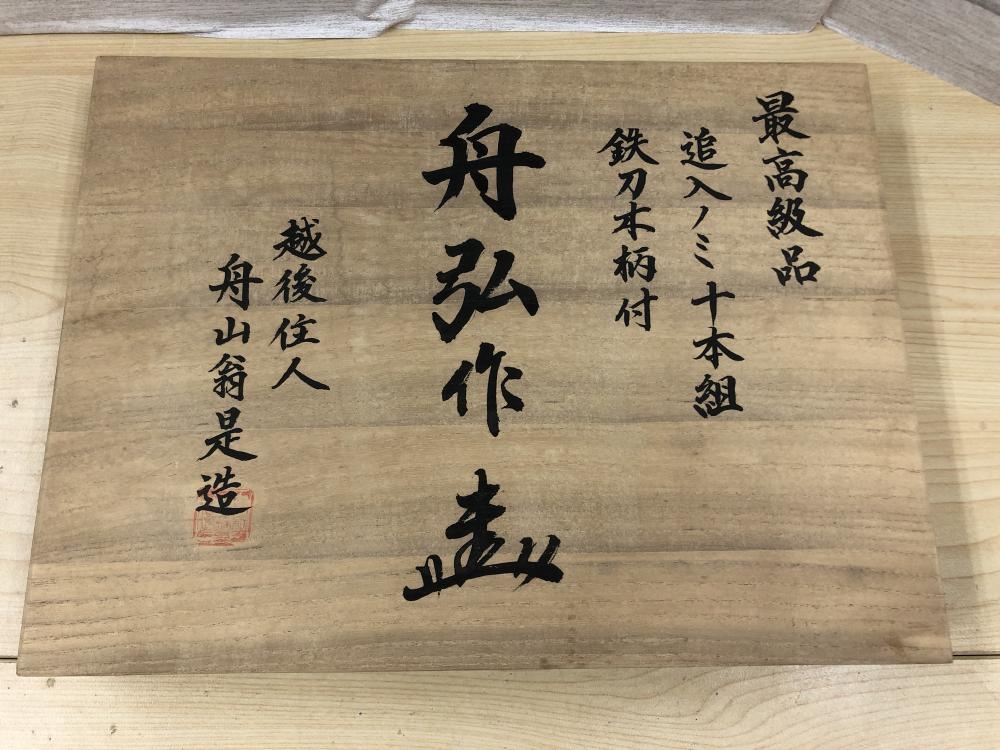 最高級品
追入ノミ十本組
鉄刀木柄付
舟弘作
越後住人
舟山翁是造